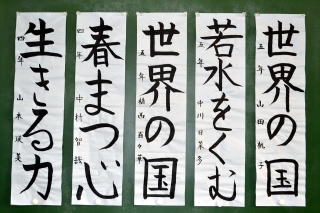 世界の国
五年 山田帆子
若水をくむ
五年 中川日菜多
世界の国
五年
春まつ心
四年 中村智哉
生きる力
四年 山本瑛美